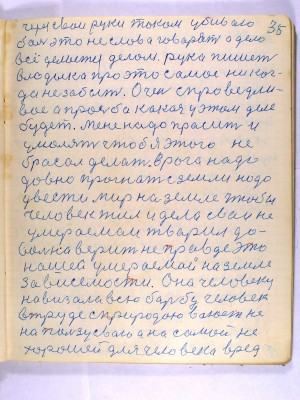 через свои руки током убивало
35
бал это не слова говарят а дело
всё целиту делом. рука пишет
владыка про это самое никог-
да незабыт. Очен справедли-
вое а прозба какая у этом деле
будет. Мене надо прасит и
умолят чтоб я этого не
брасал делат. врага надо
довно прогнат с земли надо
увести мир на земле чтобы
человек жил и дела сваи не
умераемаи тварил до-
волна верит не правде это
нашей умераемай на земле
зависемости. Она человеку
навизала всю барбу человек
в труде с природою ваюет не
на ползу сваю а на самой не
хорошей для человека вред